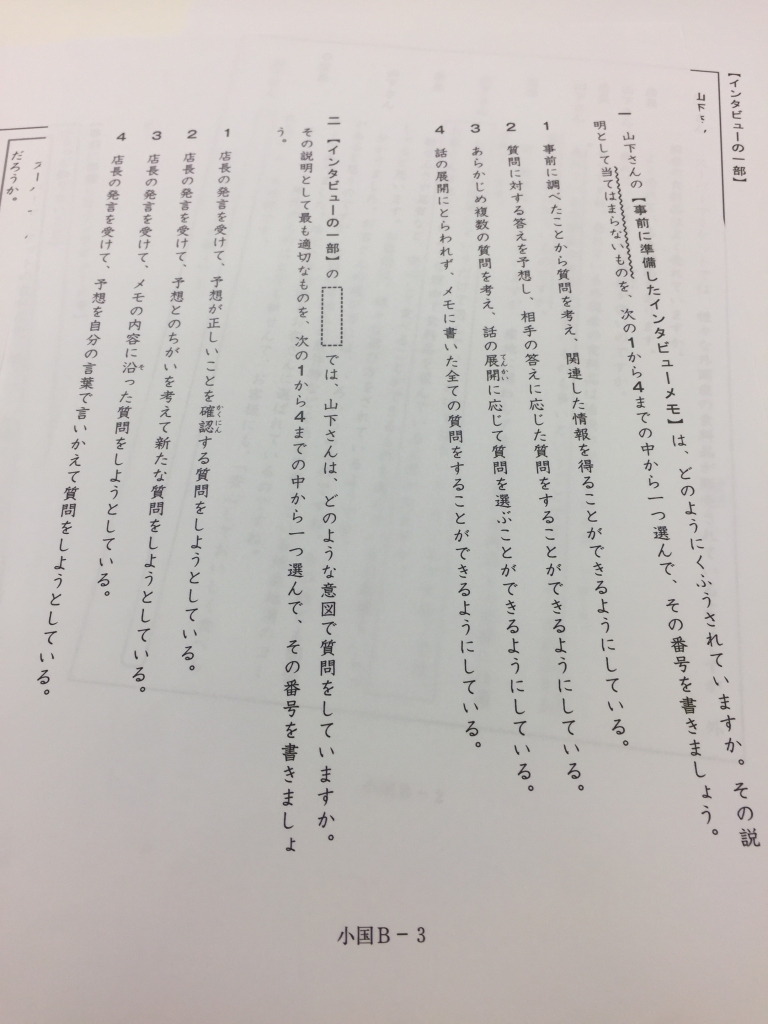 【インタビューの一部】
山下
一 山下さんの【事前に準備したインタビューメモ】は、どのようにくふうされていますか。その説
明として当てはまらないものを、次の1から4までの中から一つ選んで、その番号を書きましょう。
1 事前に調べたことから質問を考え、関連した情報を得ることができるようにしている。
2 質問に対する答えを予想し、相手の答えに応じた質問をすることができるようにしている。
3 あらかじめ複数の質問を考え、話の展開に応じて質問を選ぶことができるようにしている。
4 話の展開にとらわれず、メモに書いた全ての質問をすることができるようにしている。
二 【インタビューの一部】の では、山下さんは、どのような意図で質問をしていますか。
その説明として最も適切なものを、次の1から4までの中から一つ選んで、その番号を書きましょ
う。
1 店長の発言を受けて、予想が正しいことを確認する質問をしようとしている。
2 店長の発言を受けて、予想とのちがいを考えて新たな質問をしようとしている。
3 店長の発言を受けて、メモの内容に沿った質問をしようとしている。
4 店長の発言を受けて、予想を自分の言葉で言いかえて質問をしようとしている。
だろうか。
小国B－3